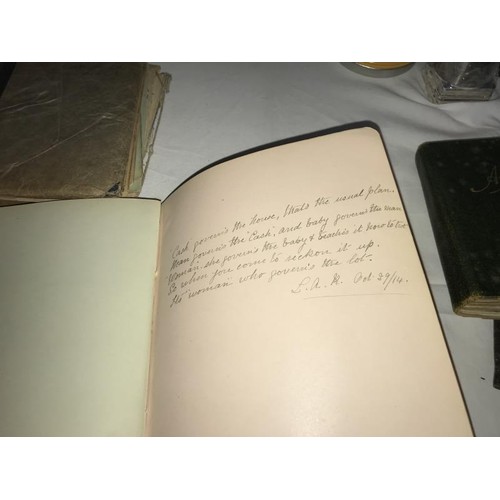 Cash govern's the house, thats the usual plan.
Man govern's the "Cash", and baby govern's the man
Woman she govern's the baby & teaches it how to
So when you come to reckon it up.
Its "woman" who govern's the lot.
L. A. H. Oct 29/14.
A